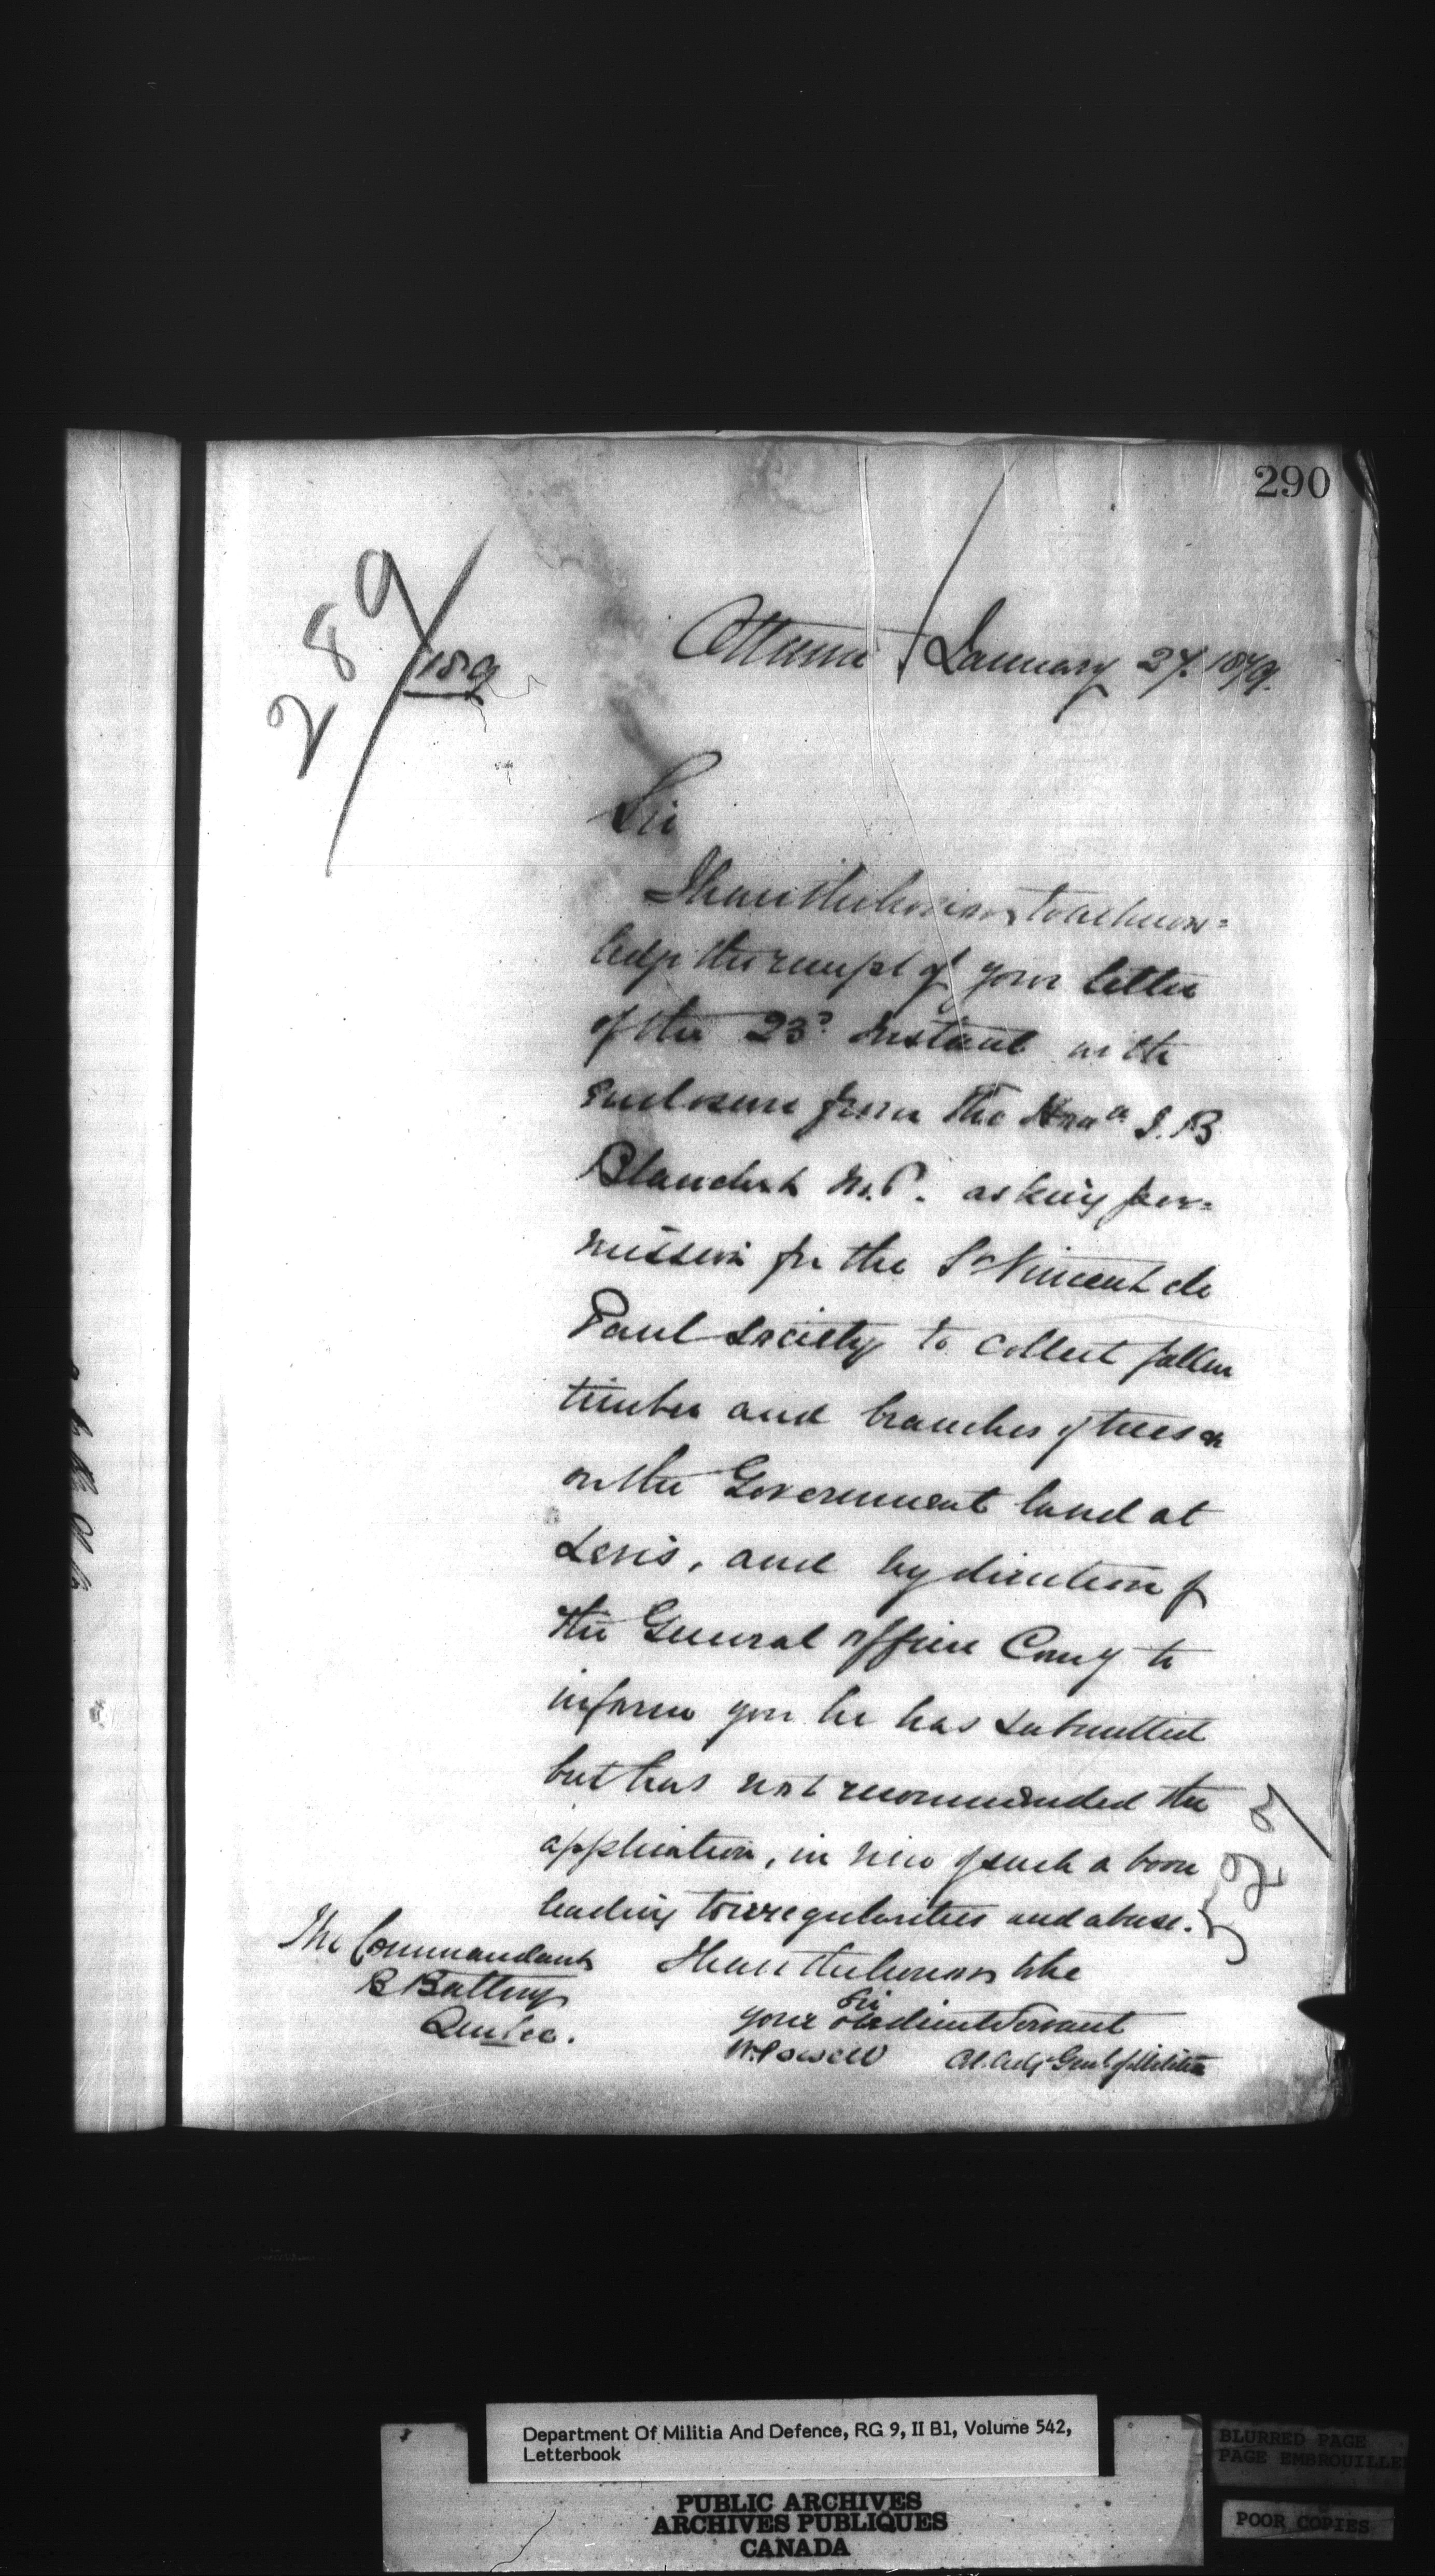 290
289
1879
Ottawa January 27. 1879.
Sir
I have the honor to acknow=
ledge the receipt of your letter
of the 23d instant with
enclosure from the Hon. J. B
Blanchet M.P. asking per=
mission for the St Vincent de
Paul Society to collect fallen
timber and branches of trees
on the Government land at
Levis, and by direction of
the General Officer Comg to
inform you he has submitted
but has not recommended the
application, in view of such a boon
leading to irregularities and abuse.
I have the honor to be
Sir
your obedient Servant
W. Powell
The Commandant
B Battery
Quebec.
Department Of Militia And Defence, RG 9, II B1, Volume 542,
Letterbook
PUBLIC ARCHIVES
ARCHIVES PUBLIQUES
CANADA
BLURRED PAGE
PAGE EMBROUILLE
POOR COPIES